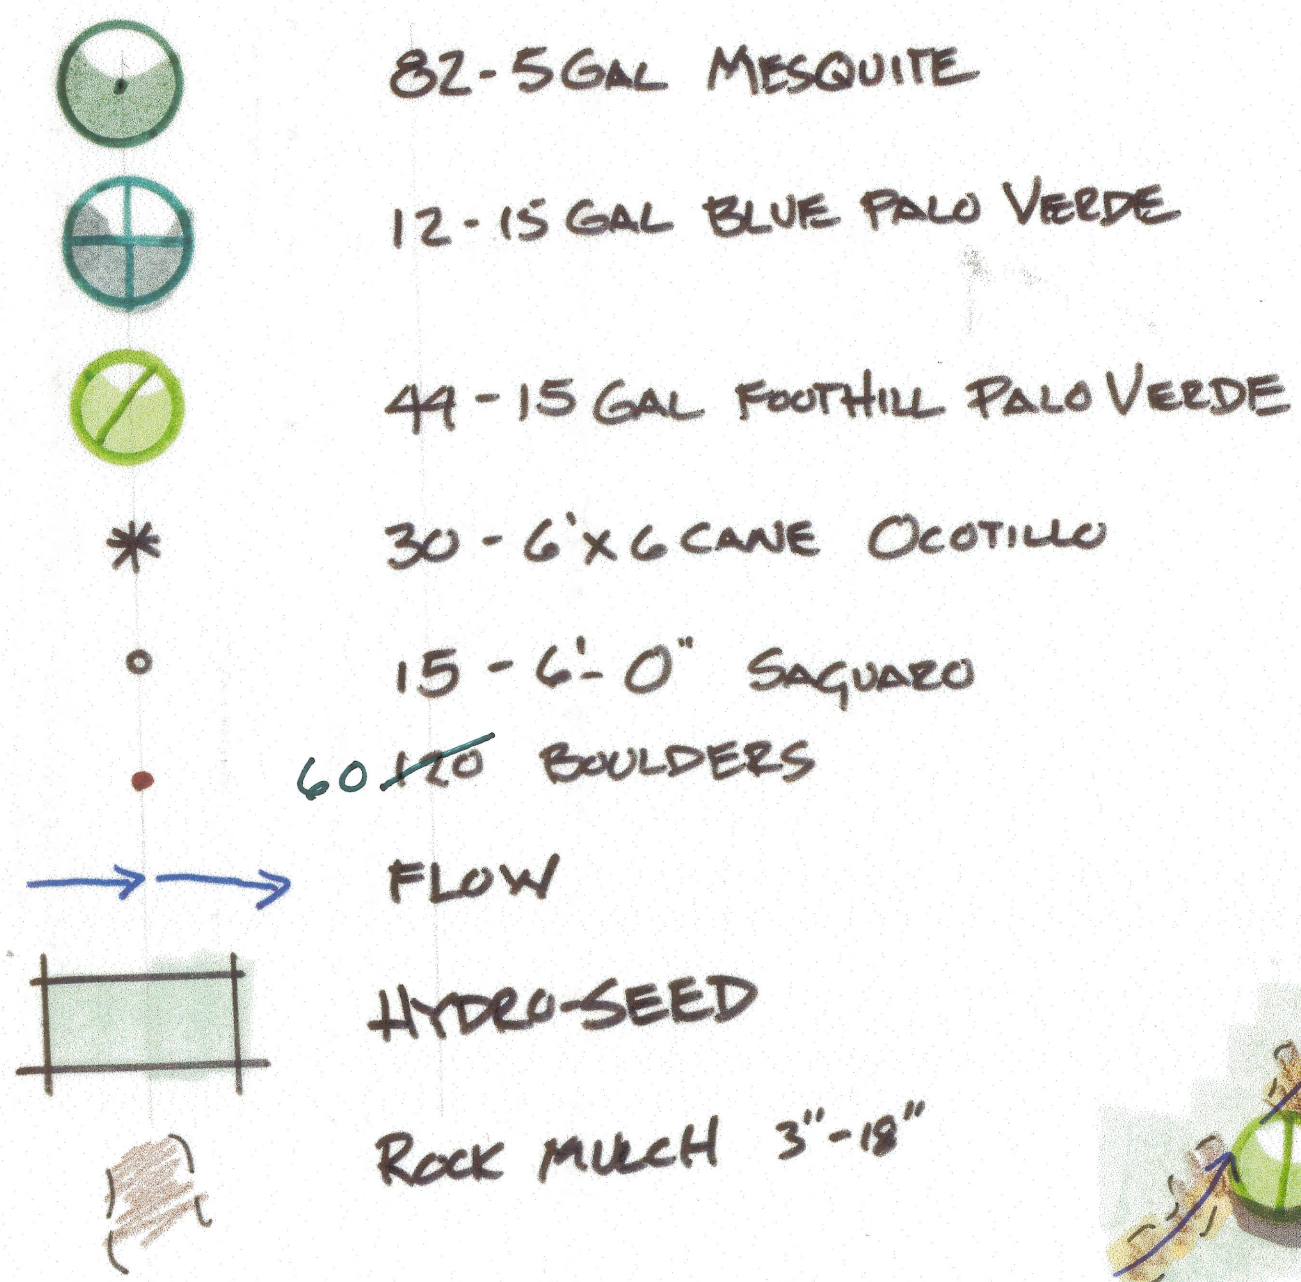 82-5 GAL MESQUITE
12-15 GAL BLUE PALO VERDE
44-15 GAL FOOTHILL PALO VERDE
30-6'x6 CANE OCOTILLO
15-6'-0" SAGUARO
60 120 BOULDERS
FLOW
HYDRO-SEED
ROCK MULCH 3"-18"